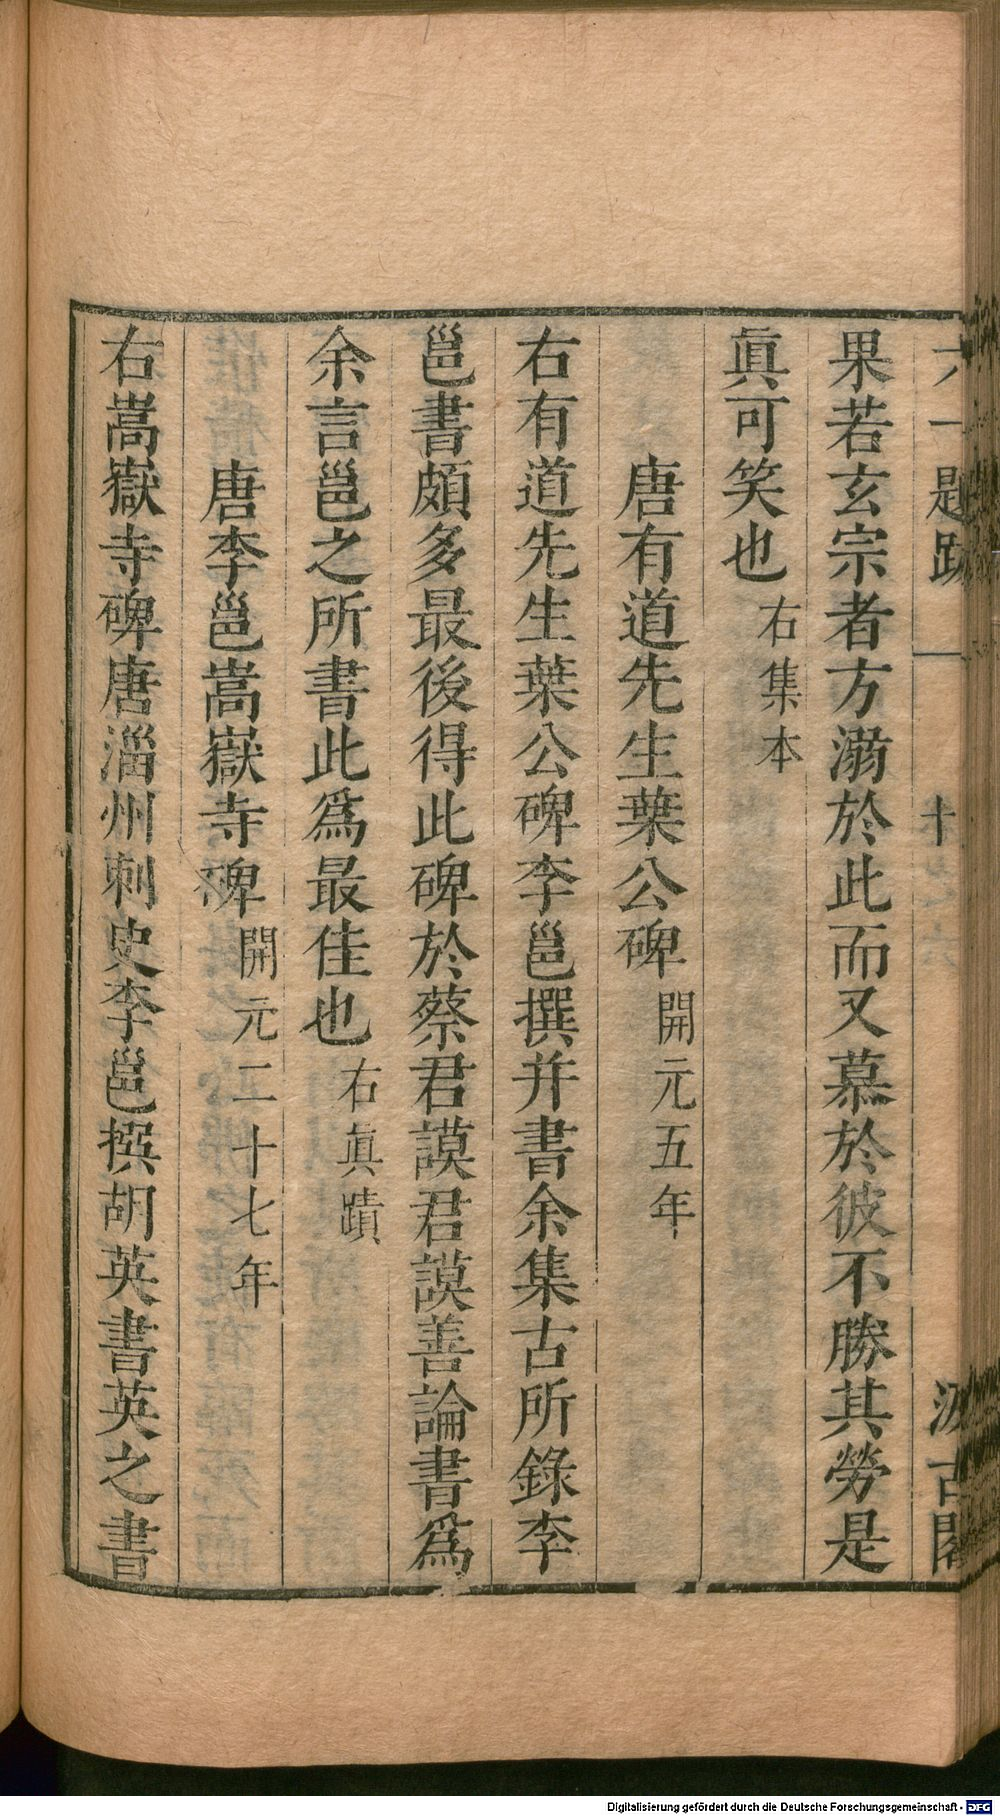 六一題跋 一 十 汲古閣
果若玄宗者方溺於此而又慕於彼不勝其勞是
眞可笑也右集本
唐有道先生葉公碑開元五年
右有道先生葉公碑李邕撰并書余集古所錄李
邕書頗多最後得此碑於蔡君謨君謨善論書爲
余言邕之所書此爲最佳也右眞蹟
唐李邕嵩嶽寺碑開元二十七年
右嵩嶽寺碑唐淄州刺史李邕撰胡英書英之書
Digitalisierung gefördert durch die Deutsche Forschungsgemeinschaft - DFG